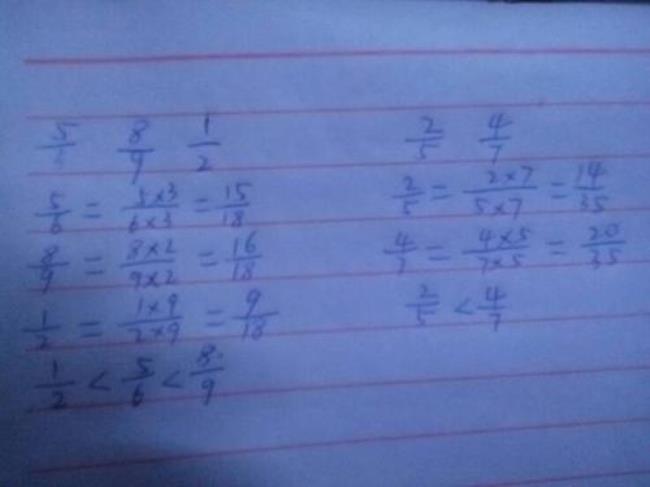 5/6 8/9 1/2
5/6 = 5×3/6×3 = 15/18
8/9 = 8×2/9×2 = 16/18
1/2 = 1×9/2×9 = 9/18
1/2 < 5/6 < 8/9
2/5 4/7
2/5 = 2×7/5×7 = 14/35
4/7 = 4×5/7×5 = 20/35
2/5 < 4/7